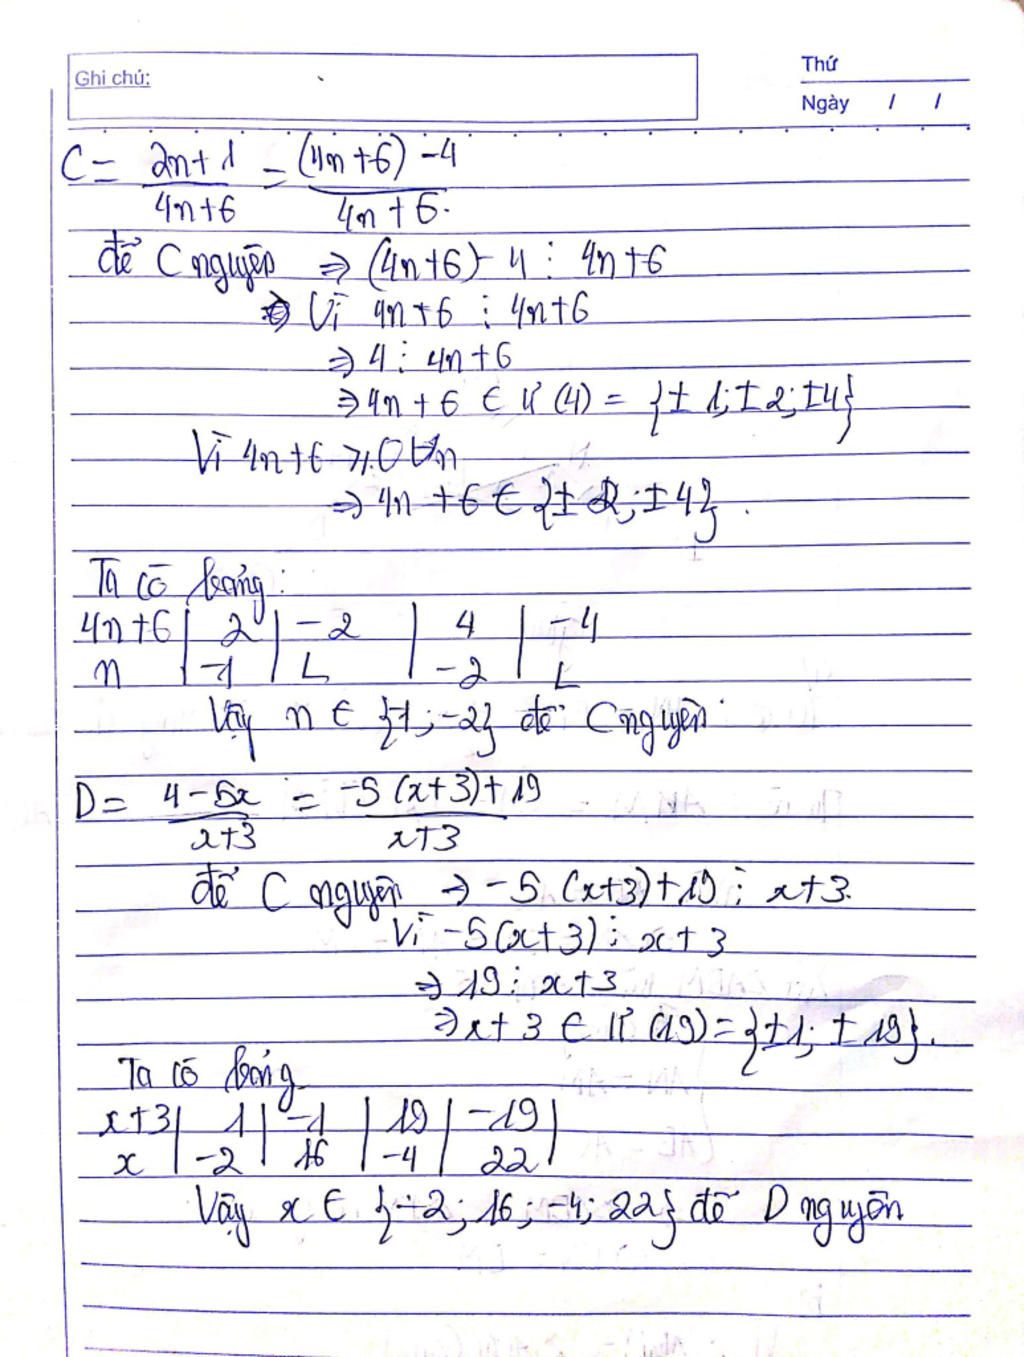 Ghi chú:
Thứ
Ngày / /
C = (2n+1)/(4n+6) = ((4n+6)-4)/(4n+6).
để C nguyên ⇒ (4n+6)-4 ⋮ 4n+6
Vì 4n+6 ⋮ 4n+6
⇒ 4 ⋮ 4n+6
⇒ 4n+6 ∈ Ư(4) = {±1; ±2; ±4}
Vì 4n+6 ⩾ 0 ∀n
⇒ 4n+6 ∈ {±2; ±4}.
Ta có bảng:
4n+6 | 2 | -2 | 4 | -4
n | -1 | L | -2 | L
Vậy n ∈ {-1; -2} để C nguyên
D = (4-5x)/(x+3) = (-5(x+3)+19)/(x+3)
để C nguyên ⇒ -5(x+3)+19 ⋮ x+3.
Vì -5(x+3) ⋮ x+3
⇒ 19 ⋮ x+3
⇒ x+3 ∈ Ư(19) = {±1; ±19}.
Ta có bảng
x+3 | 1 | -1 | 19 | -19 |
x | -2 | 16 | -4 | 22 |
Vậy x ∈ {-2; 16; -4; 22} để D nguyên